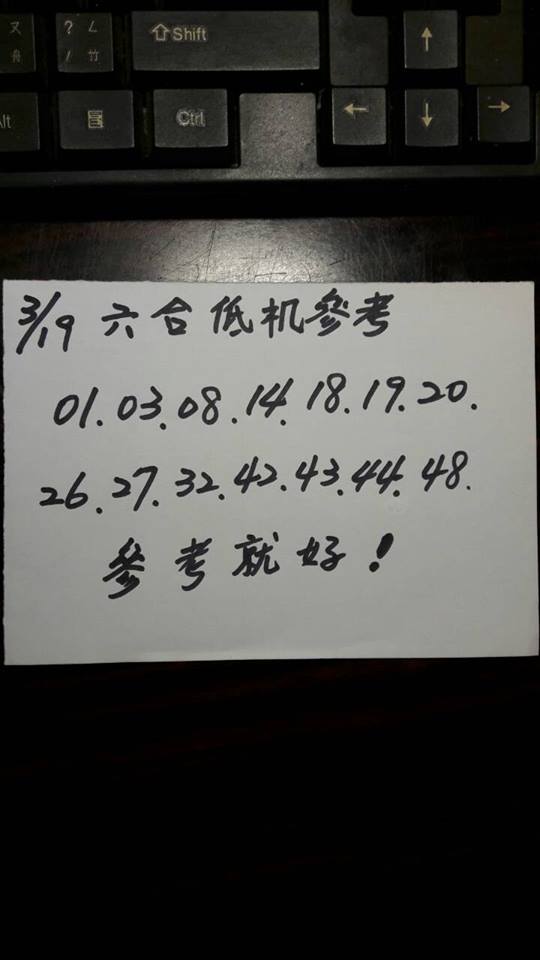 又 ? ㄥ ⇧Shift ↑
舟 / 竹
Alt Ctrl ← ↓ →
3/19 六合低机參考
01.03.08.14.18.19.20.
26.27.32.42.43.44.48.
參考就好!